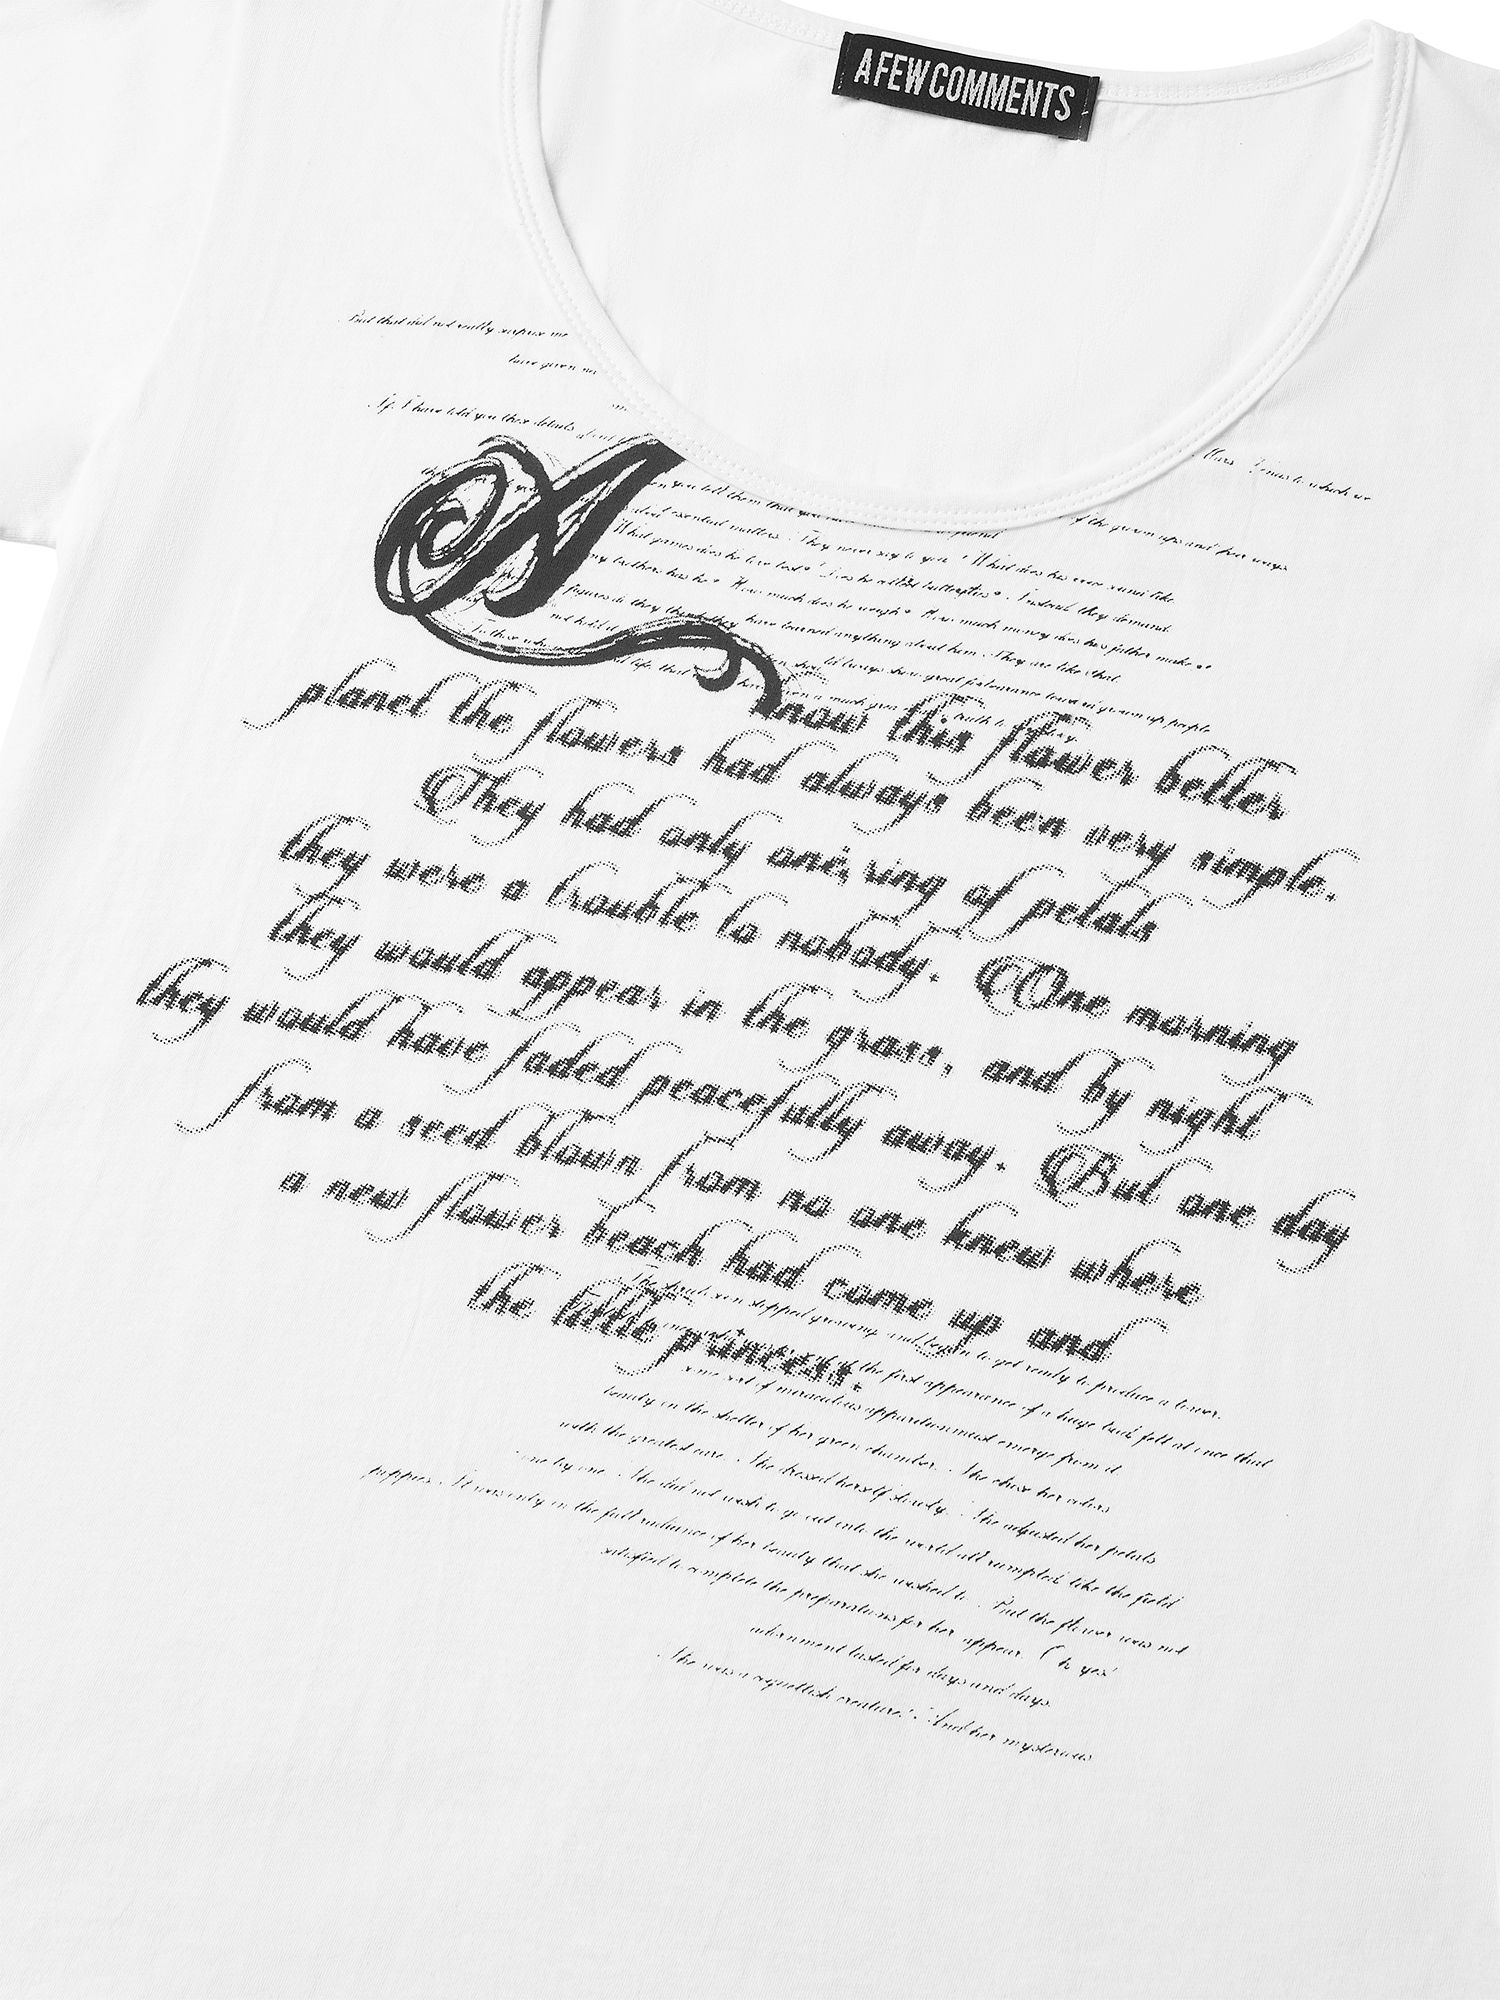 A FEW COMMENTS
But that did not really surprise me
have given na
If I have told you these details about
Mars Venus to which we
of the grown ups and their ways
en you tell them that you
friend
about essential matters. They never say to you " What does his voice sound like
What games does he love best? Does he collect butterflies? Instead they demand
How much does he weigh? How much money does his father make?
figures do they think they have learned anything about him. They are like that
not hold it
To those who
life that
should always show great forbearance toward grown up people
A
know this flower better
planet the flowers had always been very simple.
They had only one ring of petals
they were a trouble to nobody. One morning
they would appear in the grass, and by night
they would have faded peacefully away. But one day
from a seed blown from no one knew where
a new flower beach had come up and
the little princess.
The shrub soon stopped growing and began to get ready to produce a flower.
the first appearance of a huge bud felt at once that
some sort of miraculous apparition must emerge from it
beauty in the shelter of her green chamber. She chose her colors
with the greatest care. She dressed herself slowly. She adjusted her petals
one by one. She did not wish to go out into the world all rumpled like the field
poppies. It was only in the full radiance of her beauty that she wished to. But the flower was not
satisfied to complete the preparations for her appear. Oh yes!
adornment lasted for days and days.
She was a coquettish creature! And her mysterious